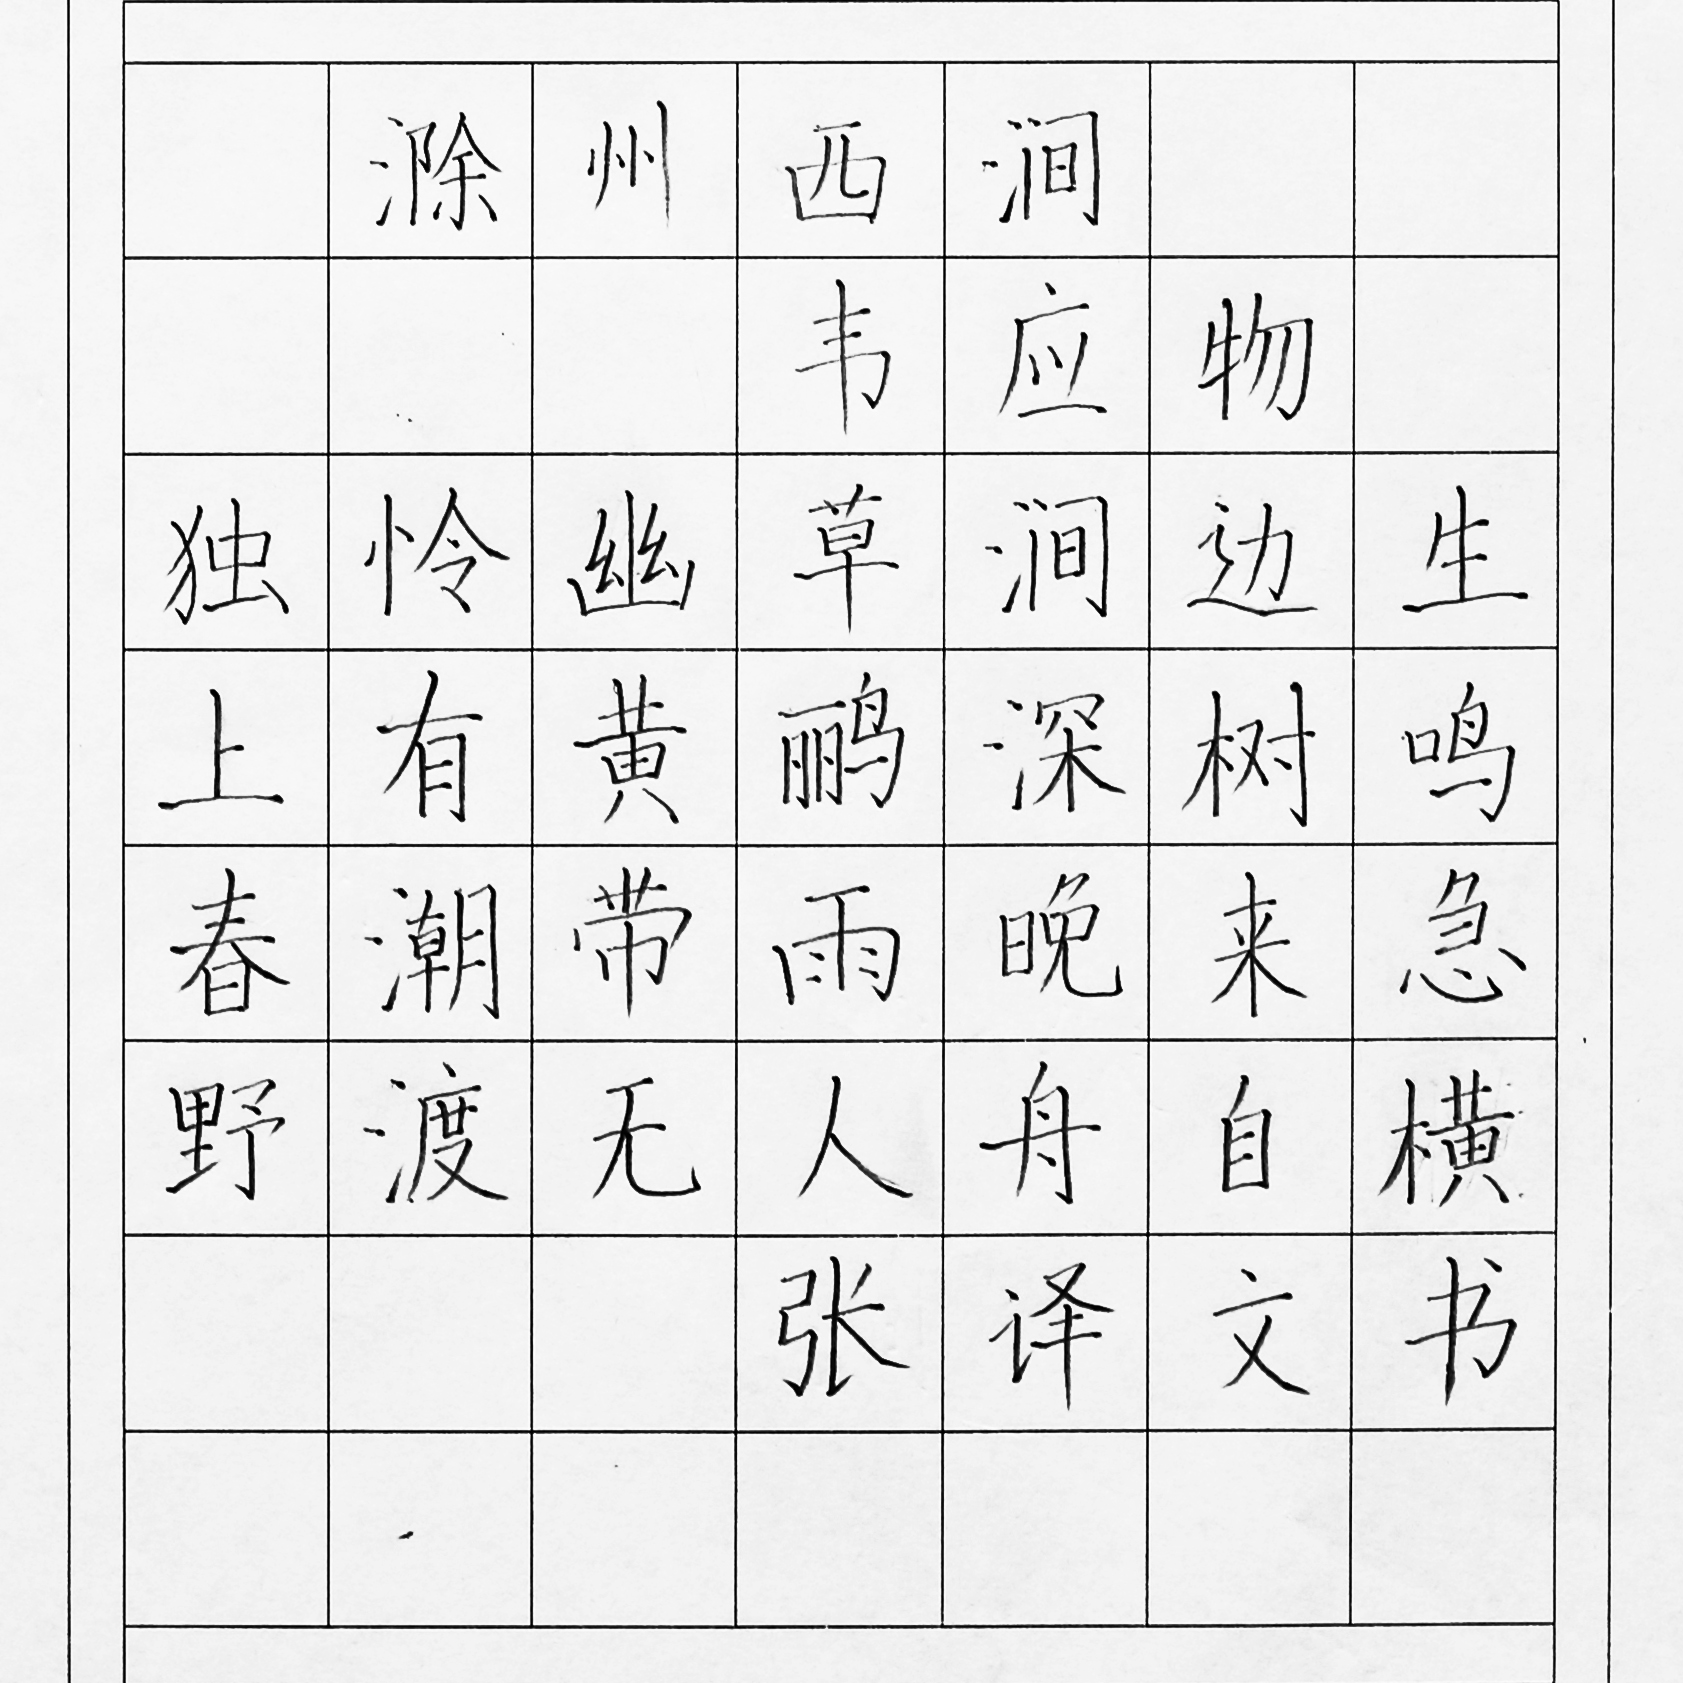 滁州西涧
韦应物
独怜幽草涧边生
上有黄鹂深树鸣
春潮带雨晚来急
野渡无人舟自横
张译文书